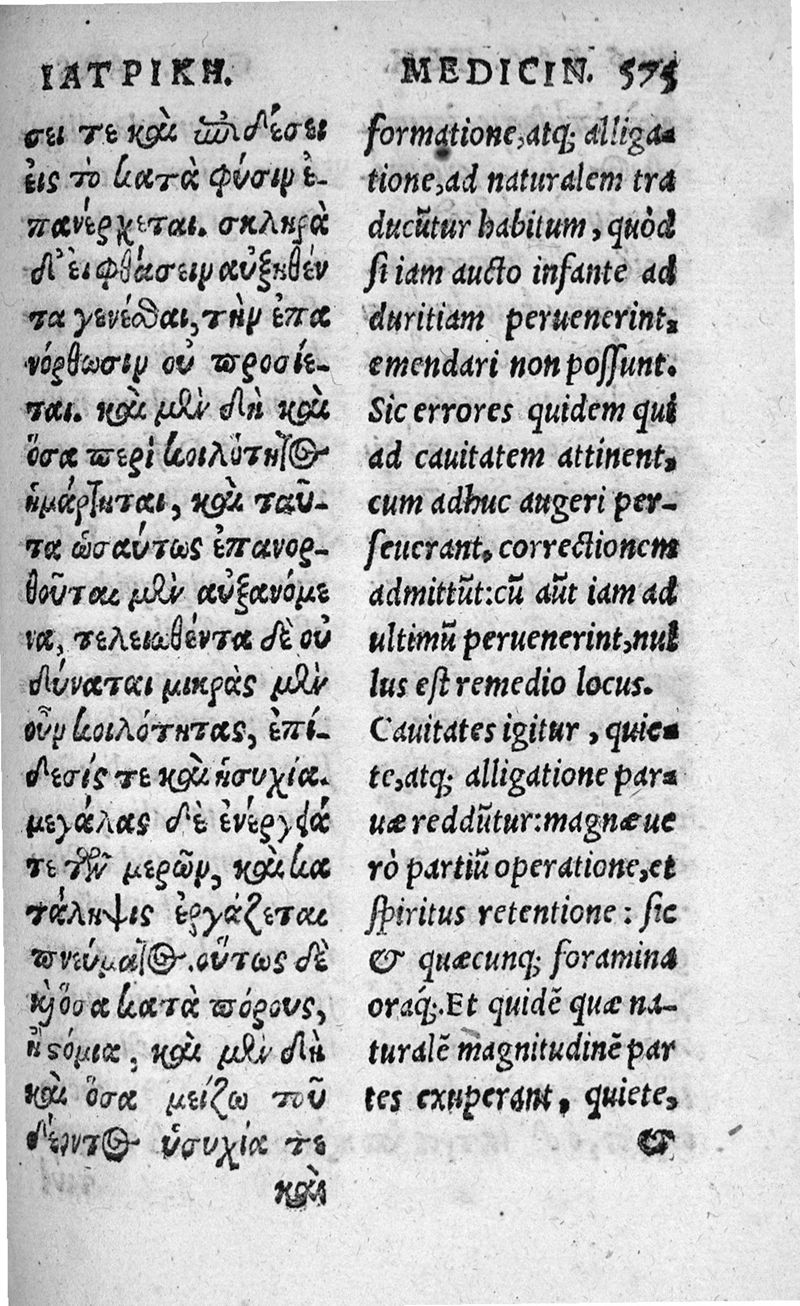 ΙΑΤΡΙΚΗ.
σει τε καὶ ἐπιδέσει
εἰς τὸ κατὰ φύσιν ἐ-
πανέρχεται. σκληρὰ
δ' εἰ φθάσειν αὐξηθέν
τα γενέσθαι, τὴν ἐπα
νόρθωσιν οὐ προσίε-
ται. καὶ μὲν δὴ καὶ
ὅσα περὶ κοιλότητος
ἡμάρτηται, καὶ ταῦ-
τα ὡσαύτως ἐπανορ-
θοῦται μὲν αὐξανόμε
να, τελειωθέντα δὲ οὐ
δύναται μικρὰς μὲν
οὖν κοιλότητας, ἐπί-
δεσίς τε καὶ ἡσυχία.
μεγάλας δὲ ἐνέργειά
τε τῶν μερῶν, καὶ κα
τάληψις ἐργάζεται
πνεύματος. οὕτως δὲ
καὶ ὅσα κατὰ πόρους,
ἢ στόμια, καὶ μὲν δὴ
καὶ ὅσα μείζω τοῦ
δέοντος ὑσυχία τε
καὶ
MEDICIN. 575
formatione, atq; alliga-
tione, ad naturalem tra
ducũtur habitum, quòd
si iam aucto infante ad
duritiam peruenerint,
emendari non possunt.
Sic errores quidem qui
ad cauitatem attinent,
cum adhuc augeri per-
seuerant, correctionem
admittũt: cũ aũt iam ad
ultimũ peruenerint, nul
lus est remedio locus.
Cauitates igitur, quie-
te, atq; alligatione par-
uæ reddũtur: magnæ ue
rò partiũ operatione, et
spiritus retentione: sic
& quæcunq; foramina
oraq́;. Et quidẽ quæ na-
turalẽ magnitudinẽ par
tes exuperant, quiete,
&